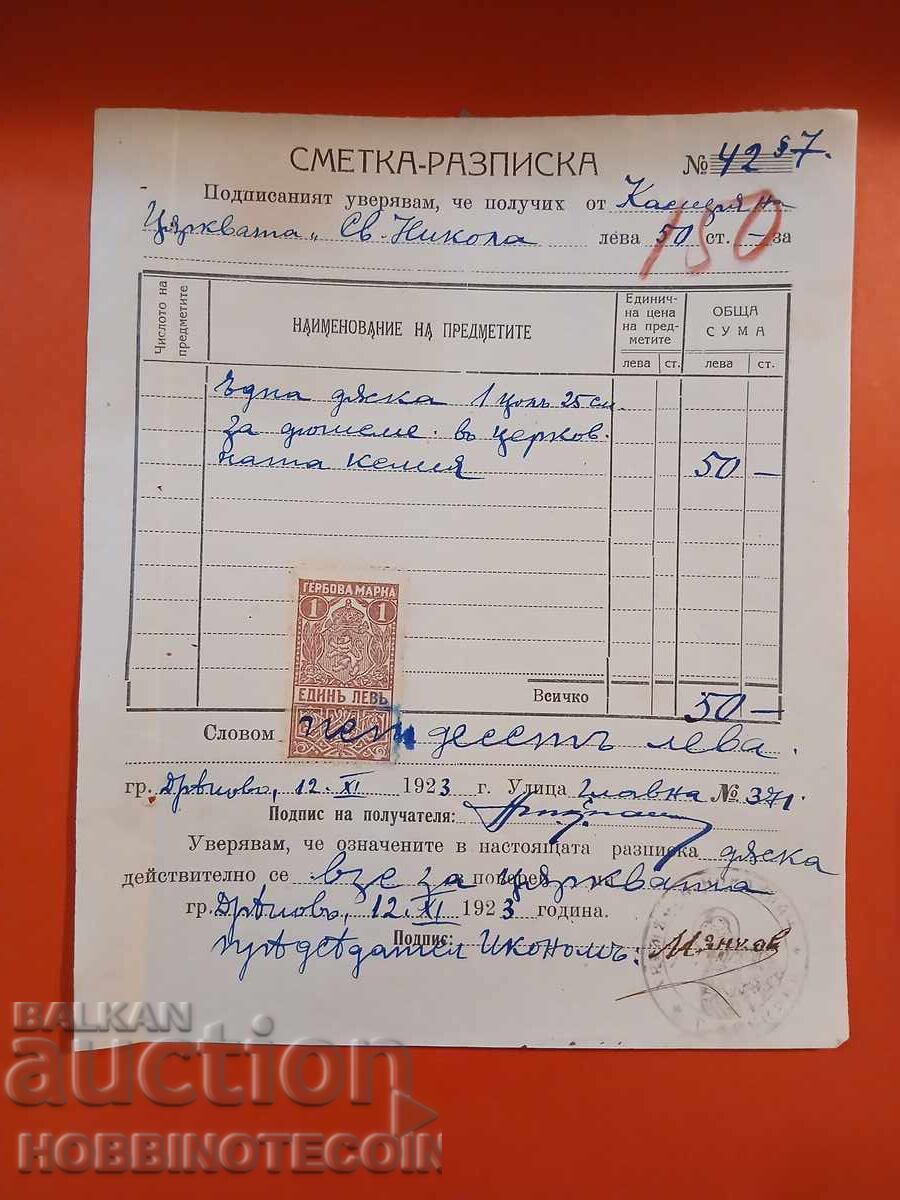 СМЕТКА-РАЗПИСКА № 42 §7.
Подписаният уверявам, че получих от Касиеря на
Църквата „Св. Никола лева 50 ст. — за
150
Числото на предметите
НАИМЕНОВАНИЕ НА ПРЕДМЕТИТЕ
Единична цена на предметите
ОБЩА СУМА
лева ст. лева ст.
Една дяска 1 цолъ 25 см.
за дюшеме въ церков-
ната келия 50 —
ГЕРБОВА МАРКА
1 1
ЕДИНЪ ЛЕВЪ
Всичко 50 —
Словом петдесетъ лева.
гр. Дрѣново, 12. XI 1923 г. Улица Главна № 371
Подпис на получателя:
Уверявам, че означените в настоящата разписка дяска
действително се взе за църквата
гр. Дрѣново, 12. XI 1923 година.
Подпис:
Прѣдседател Икономъ:
BALKAN
auction
HOBBINOTECOIN